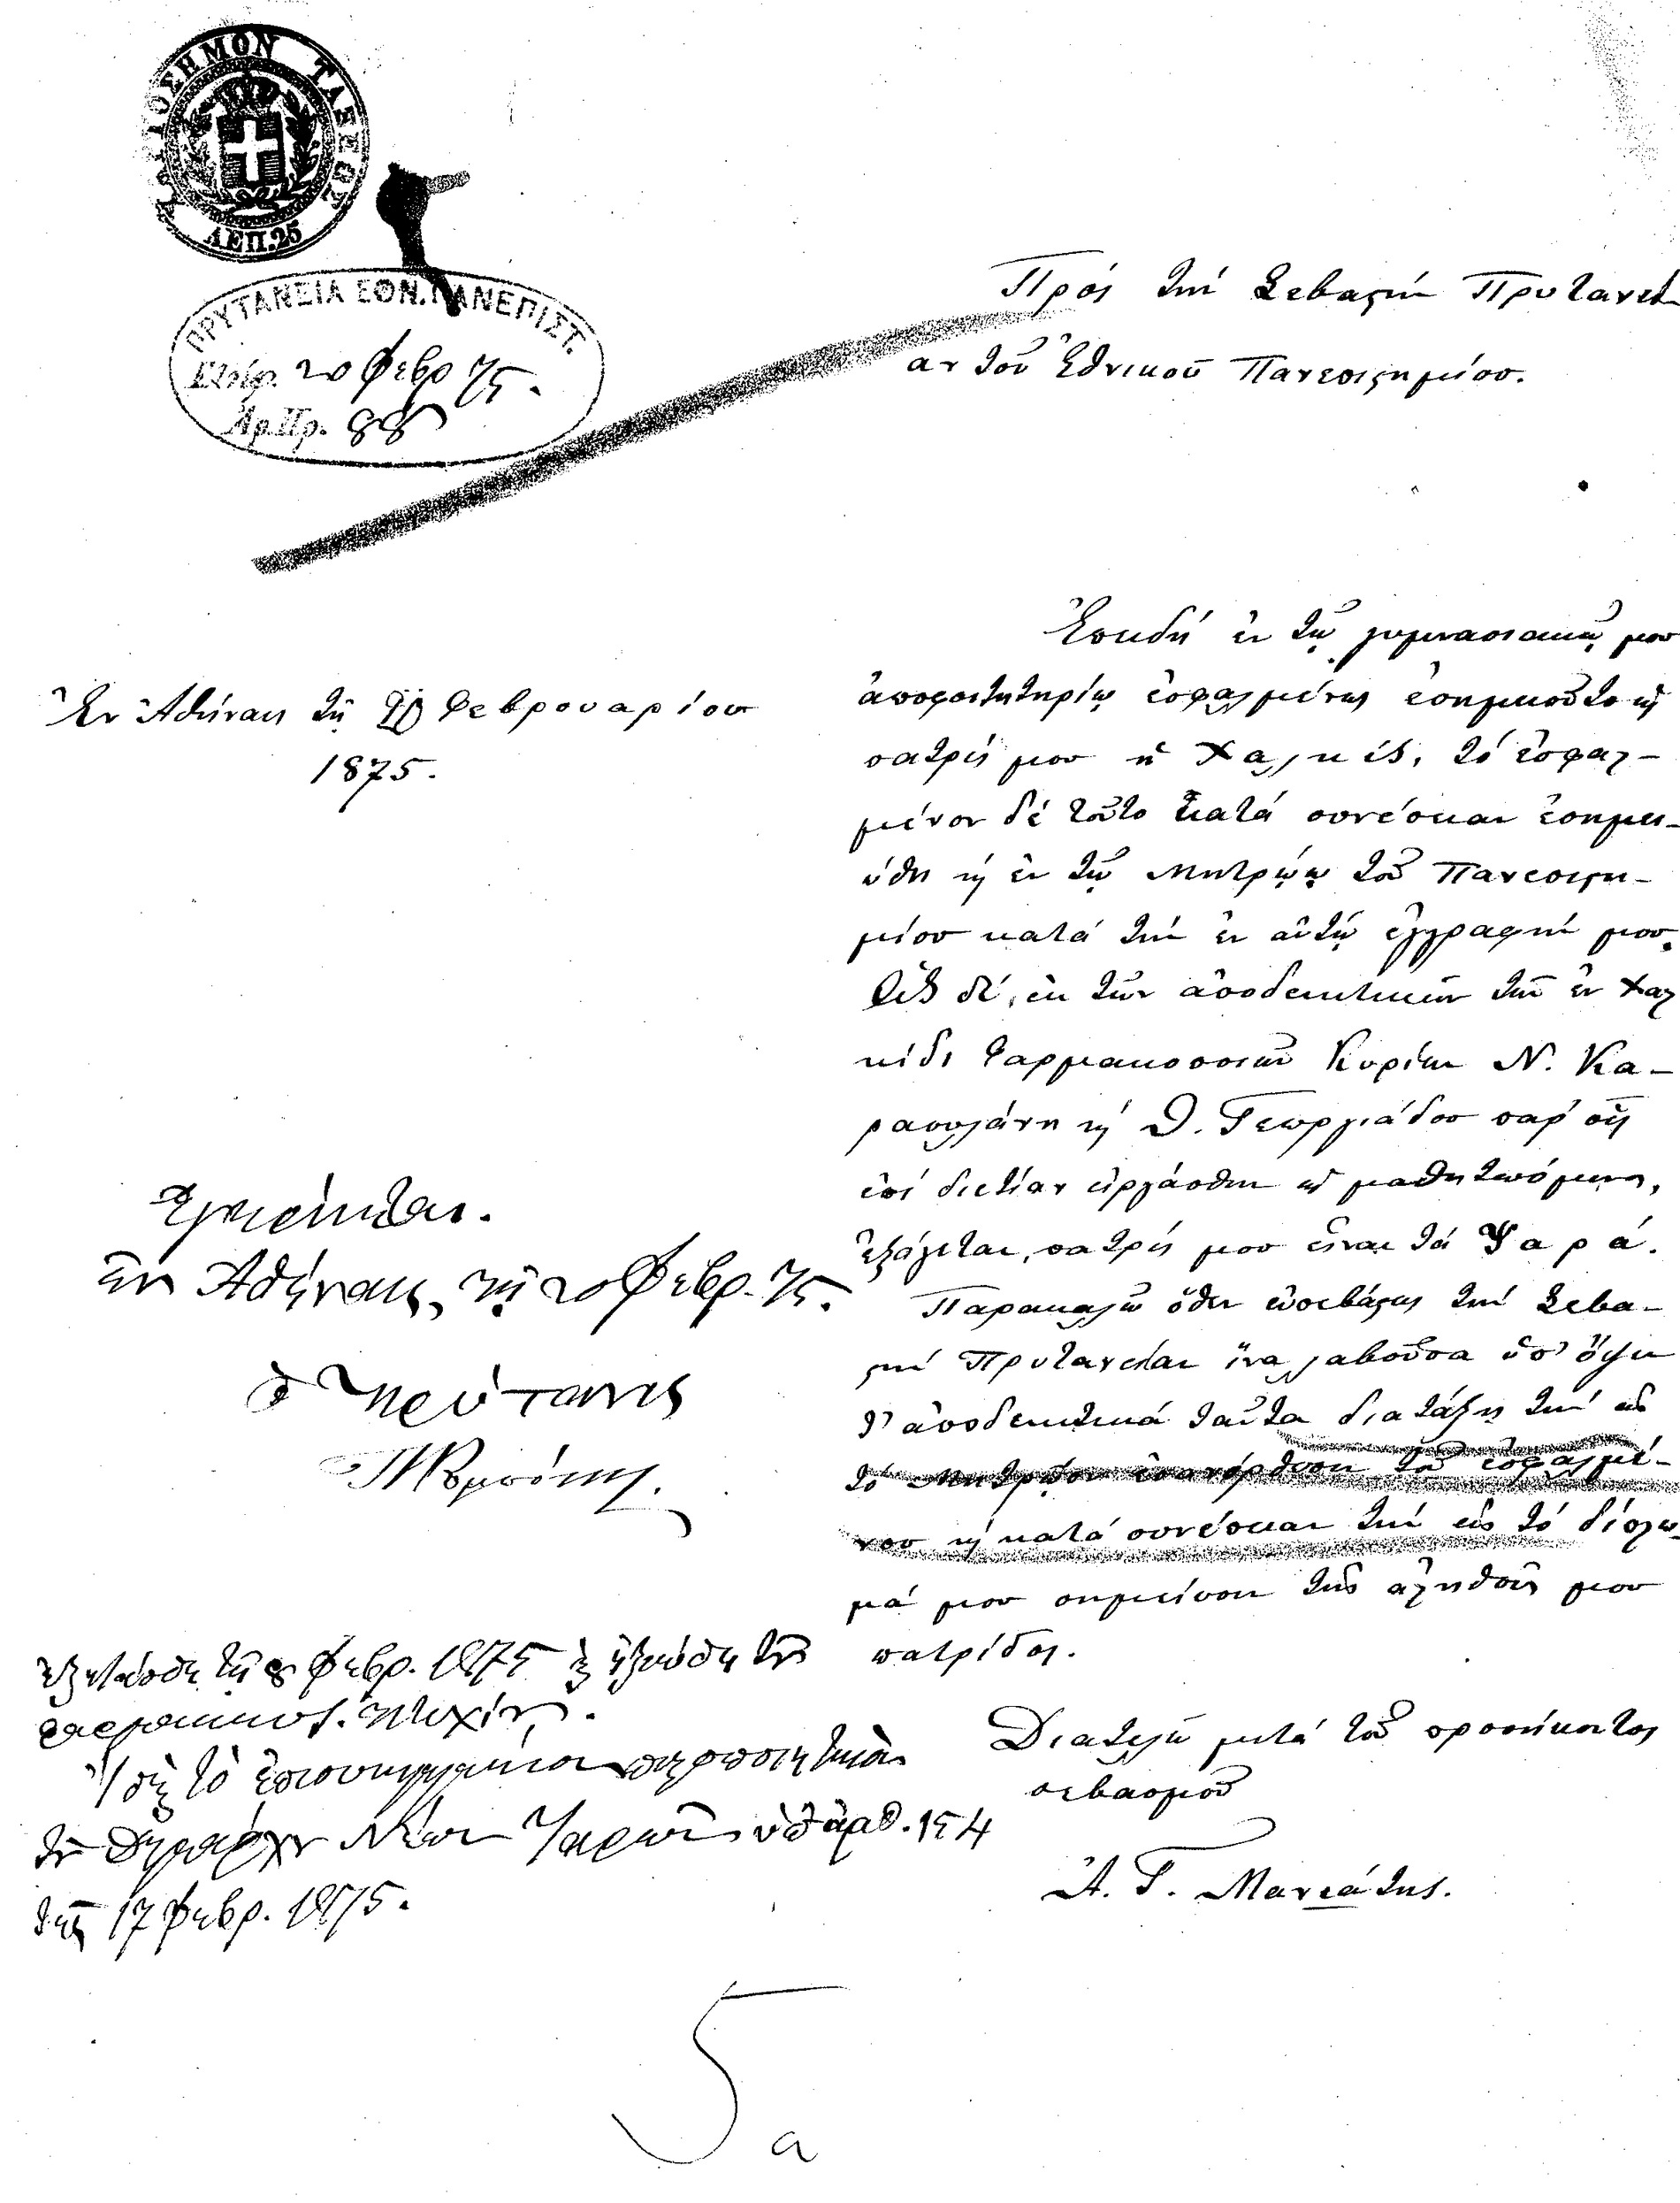 ΧΑΡΤΟΣΗΜΟΝ ΤΑΞΕΩΣ
ΛΕΠ.25
ΠΡΥΤΑΝΕΙΑ ΕΘΝ. ΠΑΝΕΠΙΣΤ.
20 Φεβρ 75.
Ἀρ.Πρ. 88
Πρός τήν Σεβαστήν Πρυτανεί-
αν τοῦ Ἐθνικοῦ Πανεπιστημίου.
Ἐν Ἀθήναις τῇ Φεβρουαρίου
1875.
Ἐπειδή ἐν τῷ γυμνασιακῷ μου
ἀποφοιτητηρίῳ ἐσφαλμένως ἐσημειοῦτο ὡς
πατρίς μου ἡ Χαλκίς, τό ἐσφαλ-
μένον δέ τοῦτο κατά συνέπειαν ἐσημει-
ώθη καί ἐν τῷ Μητρώῳ τοῦ Πανεπιστη-
μίου κατά τήν ἐν αὐτῷ ἐγγραφήν μου,
ὡς δέ, ἐκ τῶν ἀποδεικτικῶν τῶν ἐν Χαλ
κίδι Φαρμακοποιῶν Κυρίων Ν. Κα-
ραουλάνη καί Θ. Γεωργιάδου παρ' οἷς
ἐπί διετίαν εἰργάσθην ὡς μαθητευόμενος,
ἐξάγεται, πατρίς μου εἶναι τά Ψαρά.
Παρακαλῶ ὅθεν εὐσεβάστως τήν Σεβα-
στήν Πρυτανείαν ἵνα λαβοῦσα ὑπ' ὄψιν
τ' ἀποδεικτικά ταῦτα διατάξῃ τήν εἰς
τό Μητρῷον ἐπανόρθωσιν τοῦ ἐσφαλμέ-
νου καί κατά συνέπειαν τήν εἰς τό δίπλω-
μά μου σημείωσιν τῆς ἀληθοῦς μου
πατρίδος.
Διατελῶ μετά τοῦ προσήκοντος
σεβασμοῦ
Α. Γ. Μανιάτης.
Ἐγκρίνεται.
ἐν Ἀθήναις, τῇ 20 Φεβρ. 75.
ὁ Πρύτανις
ἐξητάσθη τῇ 8 Φεβρ. 1875 καί ἠξιώθη τοῦ
φαρμακευτ. πτυχίου.
Ἴδε τὸ ἐπισυνημμένον πιστοποιητικὸν
τοῦ Δημάρχου Νέων Ψαρῶν ὑπ' ἀριθ. 154
τῆς 17 Φεβρ. 1875.
5
α